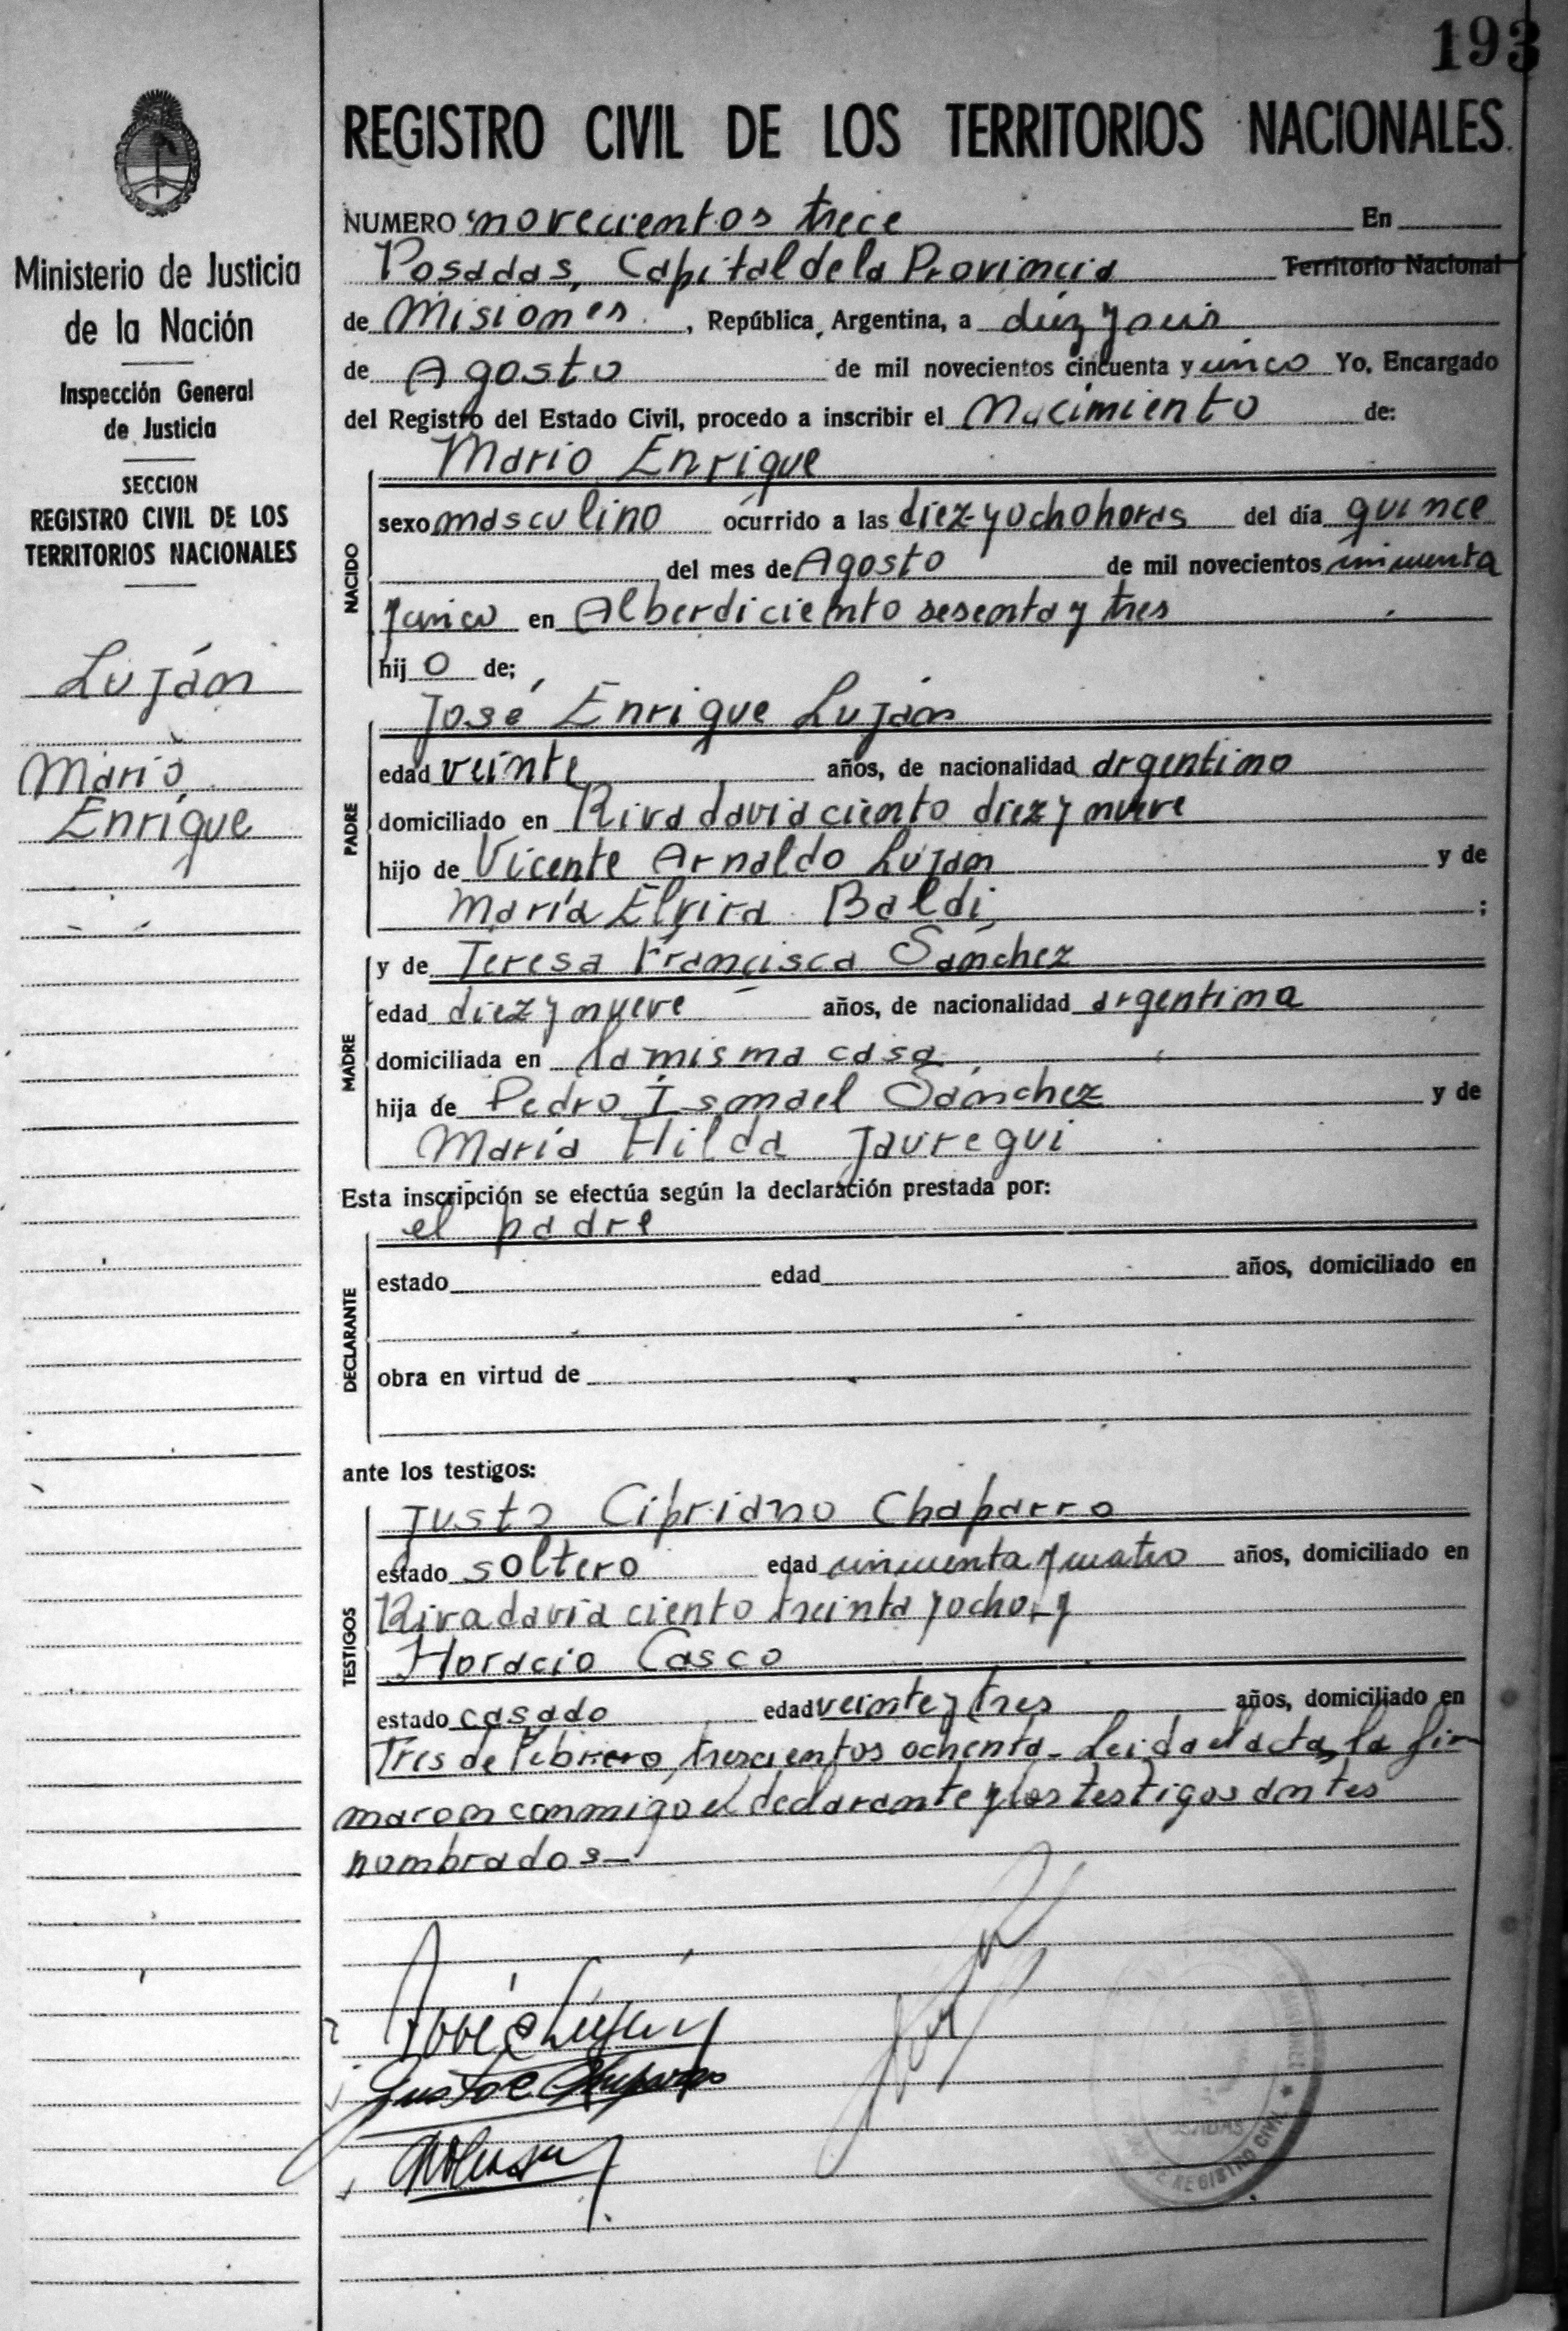 193
REGISTRO CIVIL DE LOS TERRITORIOS NACIONALES.
Ministerio de Justicia
de la Nación
Inspección General
de Justicia
SECCION
REGISTRO CIVIL DE LOS
TERRITORIOS NACIONALES
Luján
Mario
Enrique
NUMERO novecientos trece En
Posadas, Capital de la Provincia Territorio Nacional
de Misiones, República Argentina, a diez y seis
de Agosto de mil novecientos cincuenta y cinco Yo, Encargado
del Registro del Estado Civil, procedo a inscribir el Nacimiento de:
NACIDO
Mario Enrique
sexo masculino ocurrido a las diez y ocho horas del día quince
del mes de Agosto de mil novecientos cincuenta
y cinco en Alberdi ciento sesenta y tres
hij o de;
PADRE
José Enrique Luján
edad veinte años, de nacionalidad argentino
domiciliado en Rivadavia ciento diez y nueve
hijo de Vicente Arnaldo Luján y de
María Elvira Baldi ;
MADRE
y de Teresa Francisca Sánchez
edad diez y nueve años, de nacionalidad argentina
domiciliada en la misma casa
hija de Pedro Ismael Sánchez y de
María Hilda Jauregui
Esta inscripción se efectúa según la declaración prestada por:
DECLARANTE
el padre
estado edad años, domiciliado en
obra en virtud de
ante los testigos:
TESTIGOS
Justo Cipriano Chaparro
estado soltero edad cincuenta y cuatro años, domiciliado en
Rivadavia ciento treinta y ocho, y
Horacio Casco
estado casado edad veinte y tres años, domiciliado en
Tres de Febrero trescientos ochenta- Leida el acta, la fir
maron conmigo el declarante y los testigos antes
nombrados-
José E Luján
Justo C Chaparro
REGISTRO CIVIL